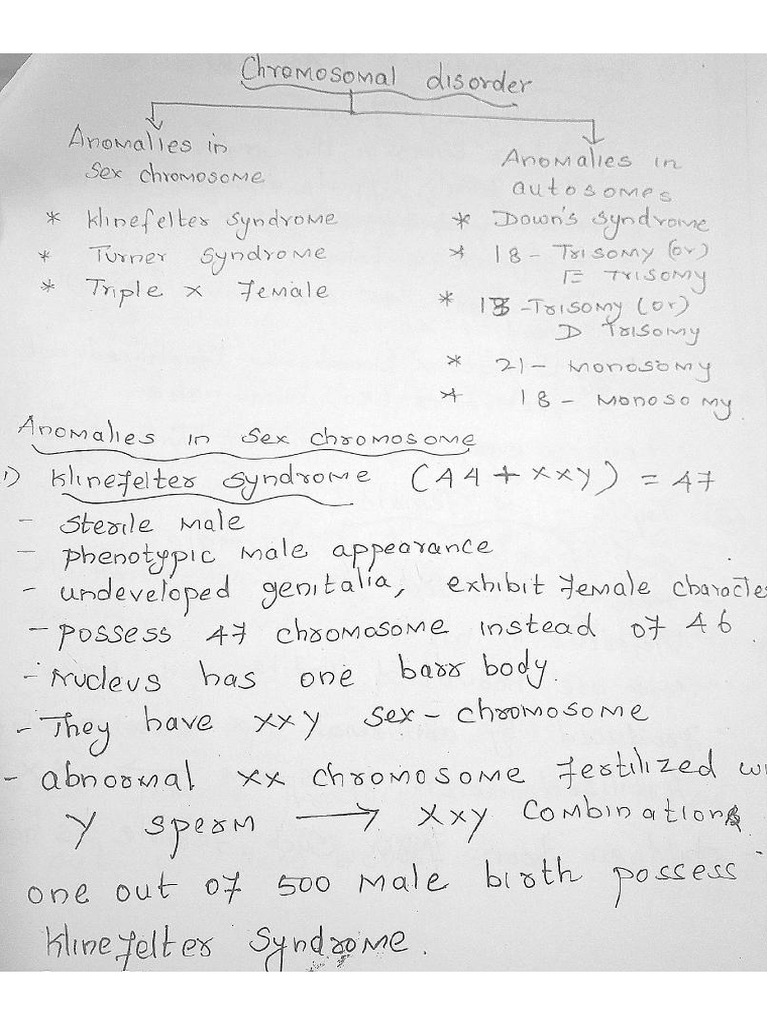 Chromosomal disorder
Anomalies in
sex chromosome
* Klinefelter syndrome
* Turner syndrome
* Triple x female
Anomalies in
autosomes
* Down's syndrome
* 18 - Trisomy (or)
E Trisomy
* 13 - Trisomy (or)
D Trisomy
* 21 - monosomy
* 18 - monosomy
Anomalies in sex chromosome
1) Klinefelter syndrome (44 + xxy) = 47
- sterile male
- phenotypic male appearance
- undeveloped genitalia, exhibit female characte
- possess 47 chromosome instead of 46
- Nucleus has one barr body.
- They have xxy sex-chromosome
- abnormal xx chromosome fertilized wi
y sperm → xxy combination
one out of 500 male birth possess
Klinefelter syndrome.